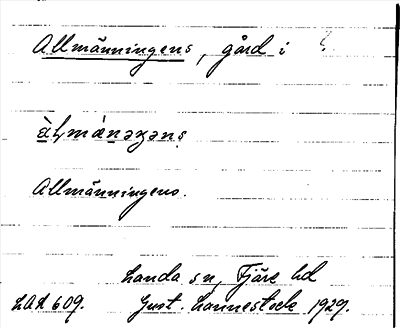 Allmänningens, gård i ?
àl̥mánəɤəns
Allmänningens.
Landa sn, Fjäre hd
LAA 609. Gust. Hannestock 1929.